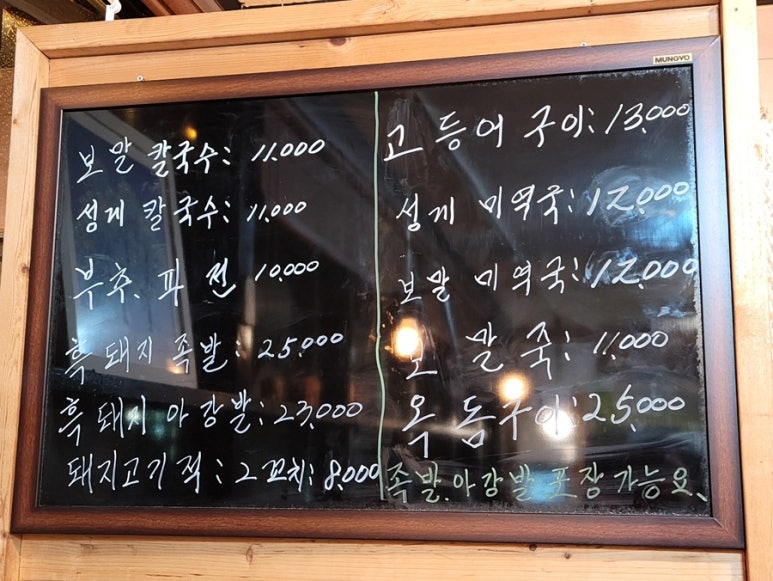 MUNGYO
보말 칼국수: 11,000
성게 칼국수: 11,000
부추. 파전 10,000
흑돼지 족발: 25,000
흑돼지 아강발: 23,000
돼지고기적: 2꼬치: 8,000
고등어 구이: 13,000
성게 미역국: 12,000
보말 미역국: 12,000
보말죽: 11,000
옥돔구이: 25,000
족발.아강발 포장 가능요.